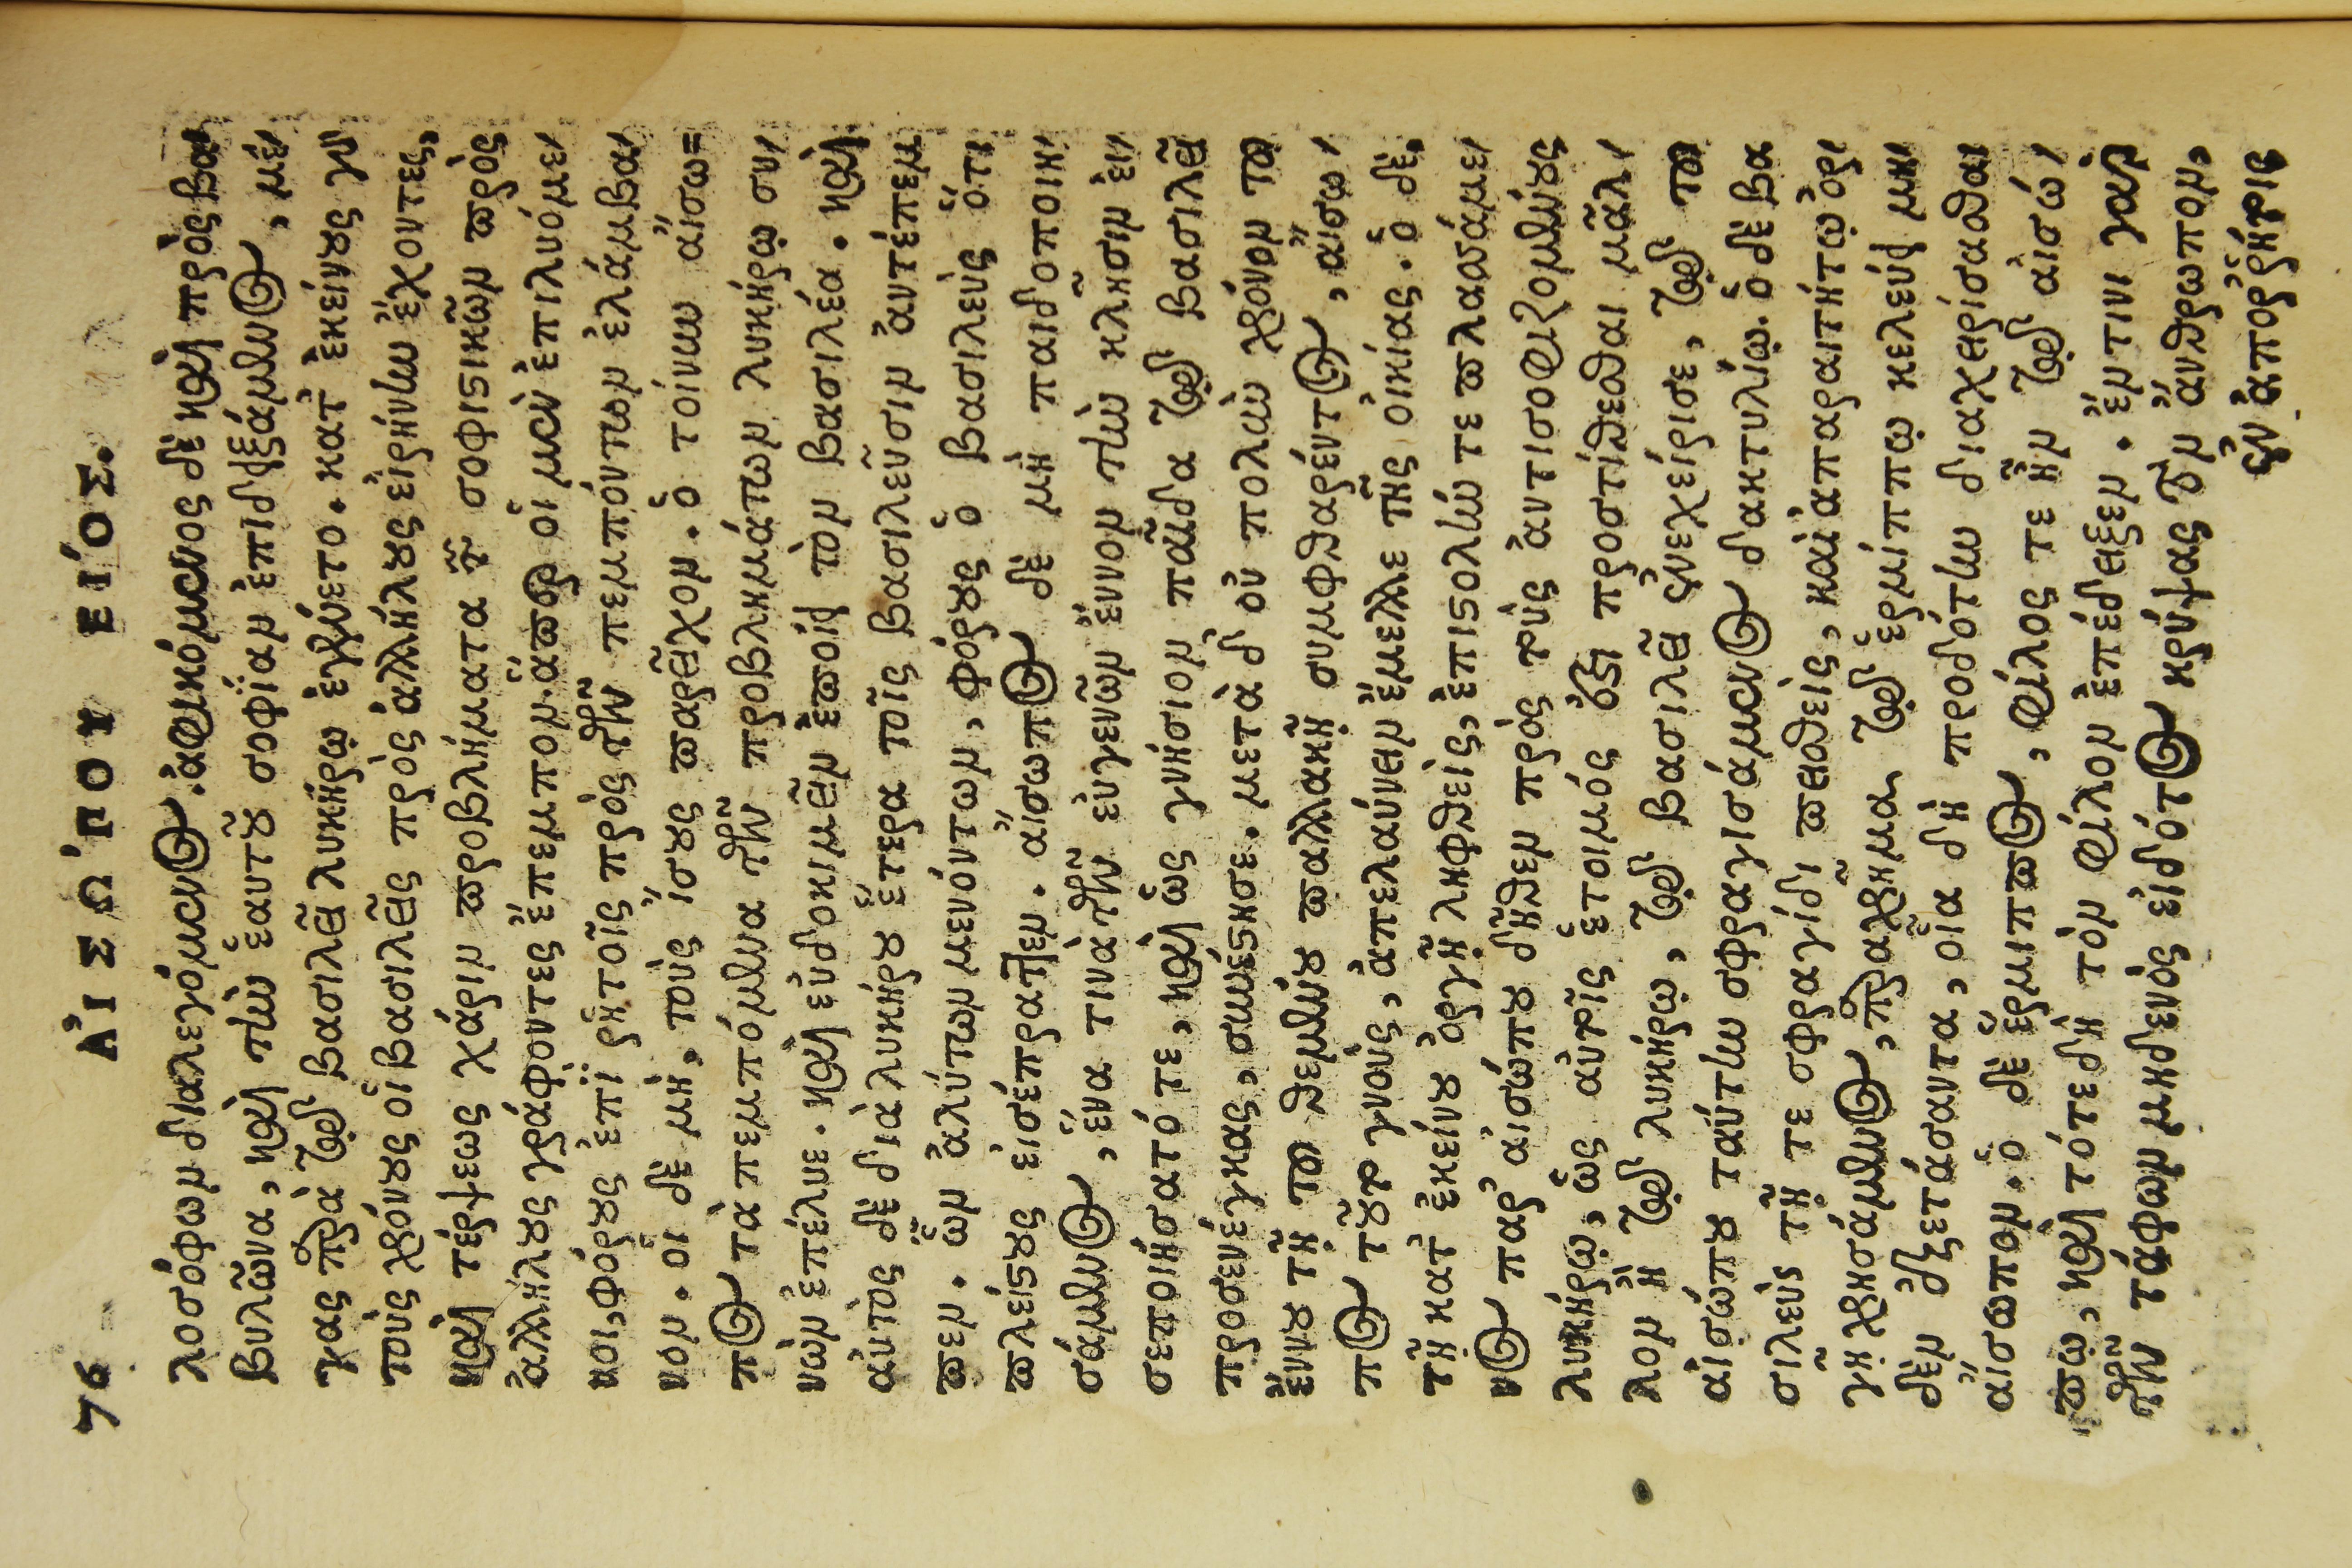 76 ΑἸΣΩ'ΠΟΥ ΒΙ'ΟΣ.
λοσόφων διαλεγόμενος δὲ καὶ πρὸς βα-
βυλῶνα, καὶ τὴν ἑαυτοῦ σοφίαν ἐπιδειξάμενος, μέ-
γας παρὰ τῷ βασιλεῖ λυκήρῳ ἐγένετο. κατ' ἐκείνους γὰ
τοὺς χρόνους οἱ βασιλεῖς πρὸς ἀλλήλους εἰρήνην ἔχοντες,
καὶ τέρψεως χάριν προβλήματα τῶν σοφιστικῶν πρὸς
ἀλλήλους γράφοντες ἔπεμπον. ἅπερ οἱ μὲν ἐπιλυόμε-
νοι, φόρους ἐπὶ ῥητοῖς πρὸς τῶν πεμπόντων ἐλάμβα-
νον. οἱ δὲ μὴ, τοὺς ἴσους παρεῖχον. ὁ τοίνυν αἴσω=
πος τὰ πεμπόμενα τῶν προβλημάτων λυκήρῳ συ-
νὼν ἐπέλυε. καὶ εὐδοκιμεῖν ἐποίει τὸν βασιλέα. καὶ
αὐτὸς δὲ διὰ λυκήρου ἕτερα τοῖς βασιλεῦσιν ἀντέπεμ
πεν. ὧν ἀλύτων μενόντων, φόρους ὁ βασιλεὺς ὅτι
πλείστους εἰσέπραττεν. αἴσωπος δὲ μὴ παιδοποιη-
σάμενος, ἕνα τινὰ τῶν εὐγενῶν ἔννον τὴν κλῆσιν εἰ-
σεποιήσατό τε, καὶ ὡς γνήσιον παῖδα τῷ βασιλεῖ
προσενέγκας, συνέστησε. μετὰ δ' οὐ πολὺν χρόνον τοῦ
ἔννου τῇ τοῦ θεμένου παλλακῇ συμφθαρέντος, αἴσω-
πος τοῦτο γνοὺς, ἀπελαύνειν ἔμελλε τῆς οἰκίας. ὁ δὲ,
τῇ κατ' ἐκείνου ὀργῇ ληφθεὶς, ἐπιστολήν τε πλασάμε-
νος παρ' αἰσώπου δῆθεν πρὸς τοὺς ἀντισοφιζομένους
λυκήρῳ, ὡς αὐτοῖς ἕτοιμός ἐστι προστίθεσθαι μᾶλ-
λον ἢ τῷ λυκήρῳ, τῷ βασιλεῖ ἐνεχείρισε, τῷ τοῦ
αἰσώπου ταύτην σφραγισάμενος δακτυλίῳ. ὁ δὲ βα
σιλεὺς τῇ τε σφραγίδι πεισθεὶς, καὶ ἀπαραιτήτῳ ὀρ-
γῇ χρησάμενος, παραχρῆμα τῷ ἑρμίππῳ κελεύει μη-
δὲν ἐξετάσαντα, οἷα δὴ προδότην διαχειρίσασθαι
αἴσωπον. ὁ δὲ ἕρμιππος, φίλος τε ἦν τῷ αἰσώ-
πῳ, καὶ τότε δὴ τὸν φίλον ἐπέδειξεν. ἔν τινι γὰρ
τῶν τάφων μηδενὸς εἰδότος κρύψας τὸν ἄνθρωπον,
ἐν ἀπορρήτοις